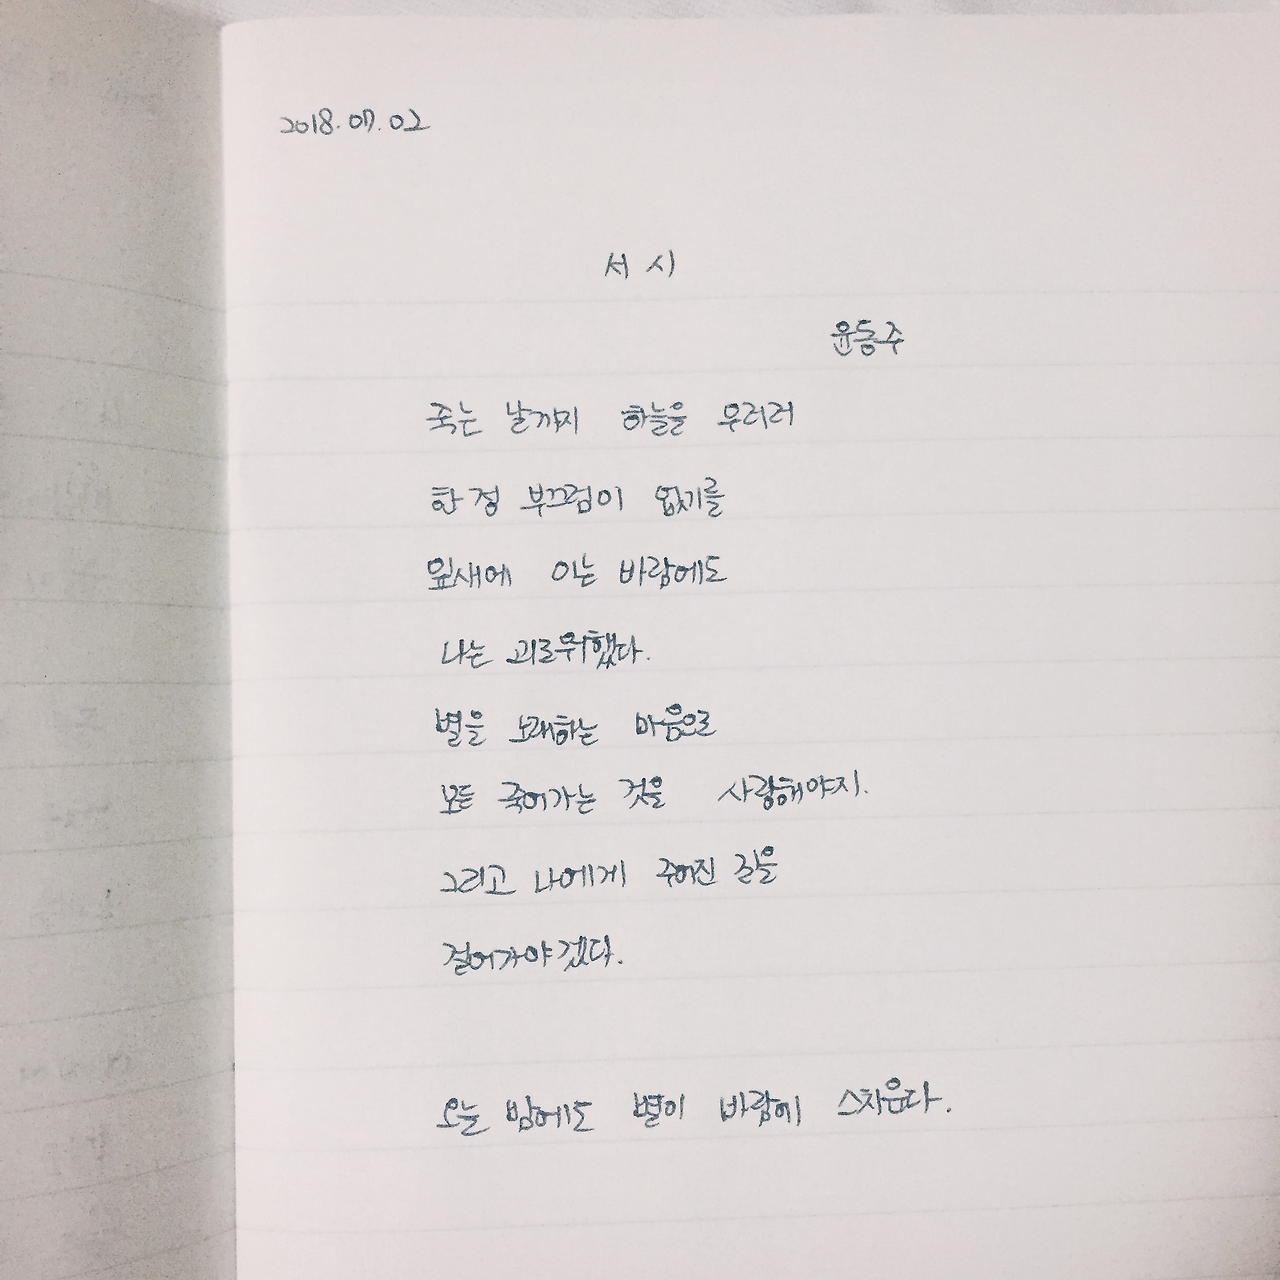 2018.07.02
서 시
윤동주
죽는 날까지 하늘을 우러러
한 점 부끄럼이 없기를
잎새에 이는 바람에도
나는 괴로워했다.
별을 노래하는 마음으로
모든 죽어가는 것을 사랑해야지.
그리고 나에게 주어진 길을
걸어가야겠다.
오늘 밤에도 별이 바람에 스치운다.